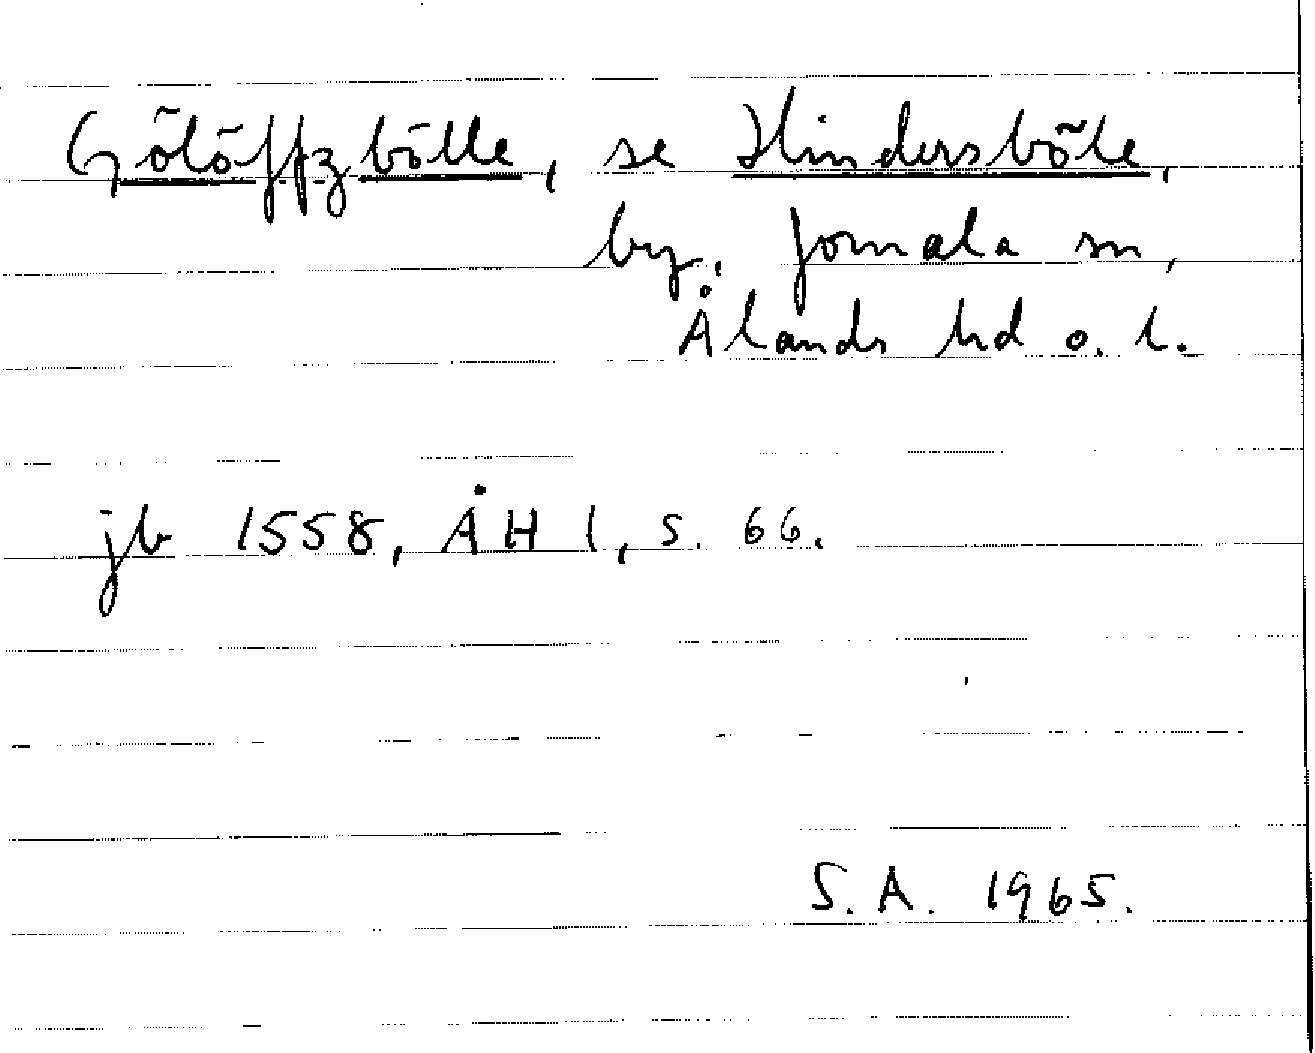 Gölöffzbölle, se Hindersböle,
by, Jomala sn,
Ålands hd o. l.
jb 1558, ÅH 1, s. 66.
S. A. 1965.